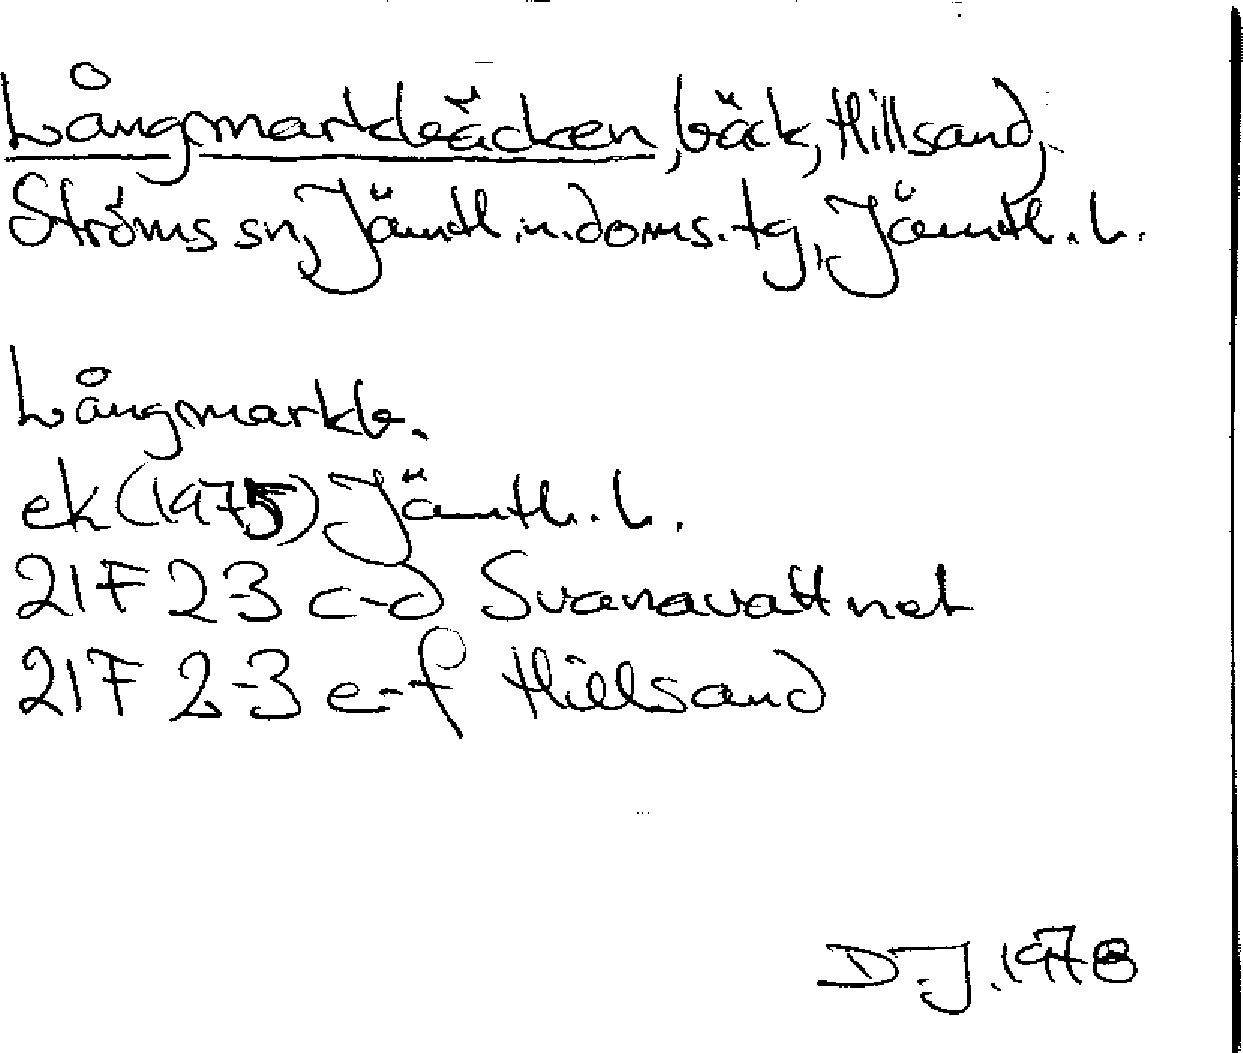 Långmarkbäcken, bäck, Hillsand,
Ströms sn, Jämtl.n.doms.tg, Jämtl.l.
Långmarkb.
ek (1975) Jämtl.l.
21F 2-3 c-d Svanavattnet
21F 2-3 e-f Hillsand
D.J. 1978